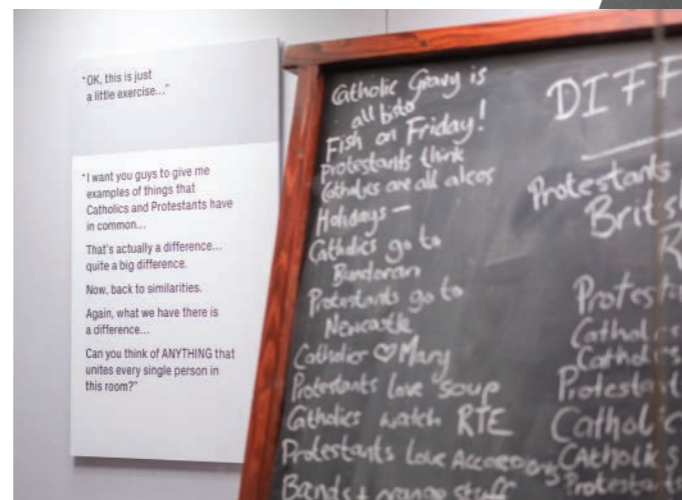 "OK, this is just
a little exercise..."
"I want you guys to give me
examples of things that
Catholics and Protestants have
in common...
That's actually a difference...
quite a big difference.
Now, back to similarities.
Again, what we have there is
a difference...
Can you think of ANYTHING that
unites every single person in
this room?"
Catholic Gravy is
all bisto
Fish on Friday!
Protestants think
Catholics are all alcos
Holidays –
Catholics go to
Bundoran
Protestants go to
Newcastle
Catholics ♡ Mary
Protestants love soup
Catholics watch RTE
Protestants Love
Bands + orange stuff
DIFF
Protestants
British
Protest
Catholics
Catholics
Protestant
Catholic
Catholics
Protestants